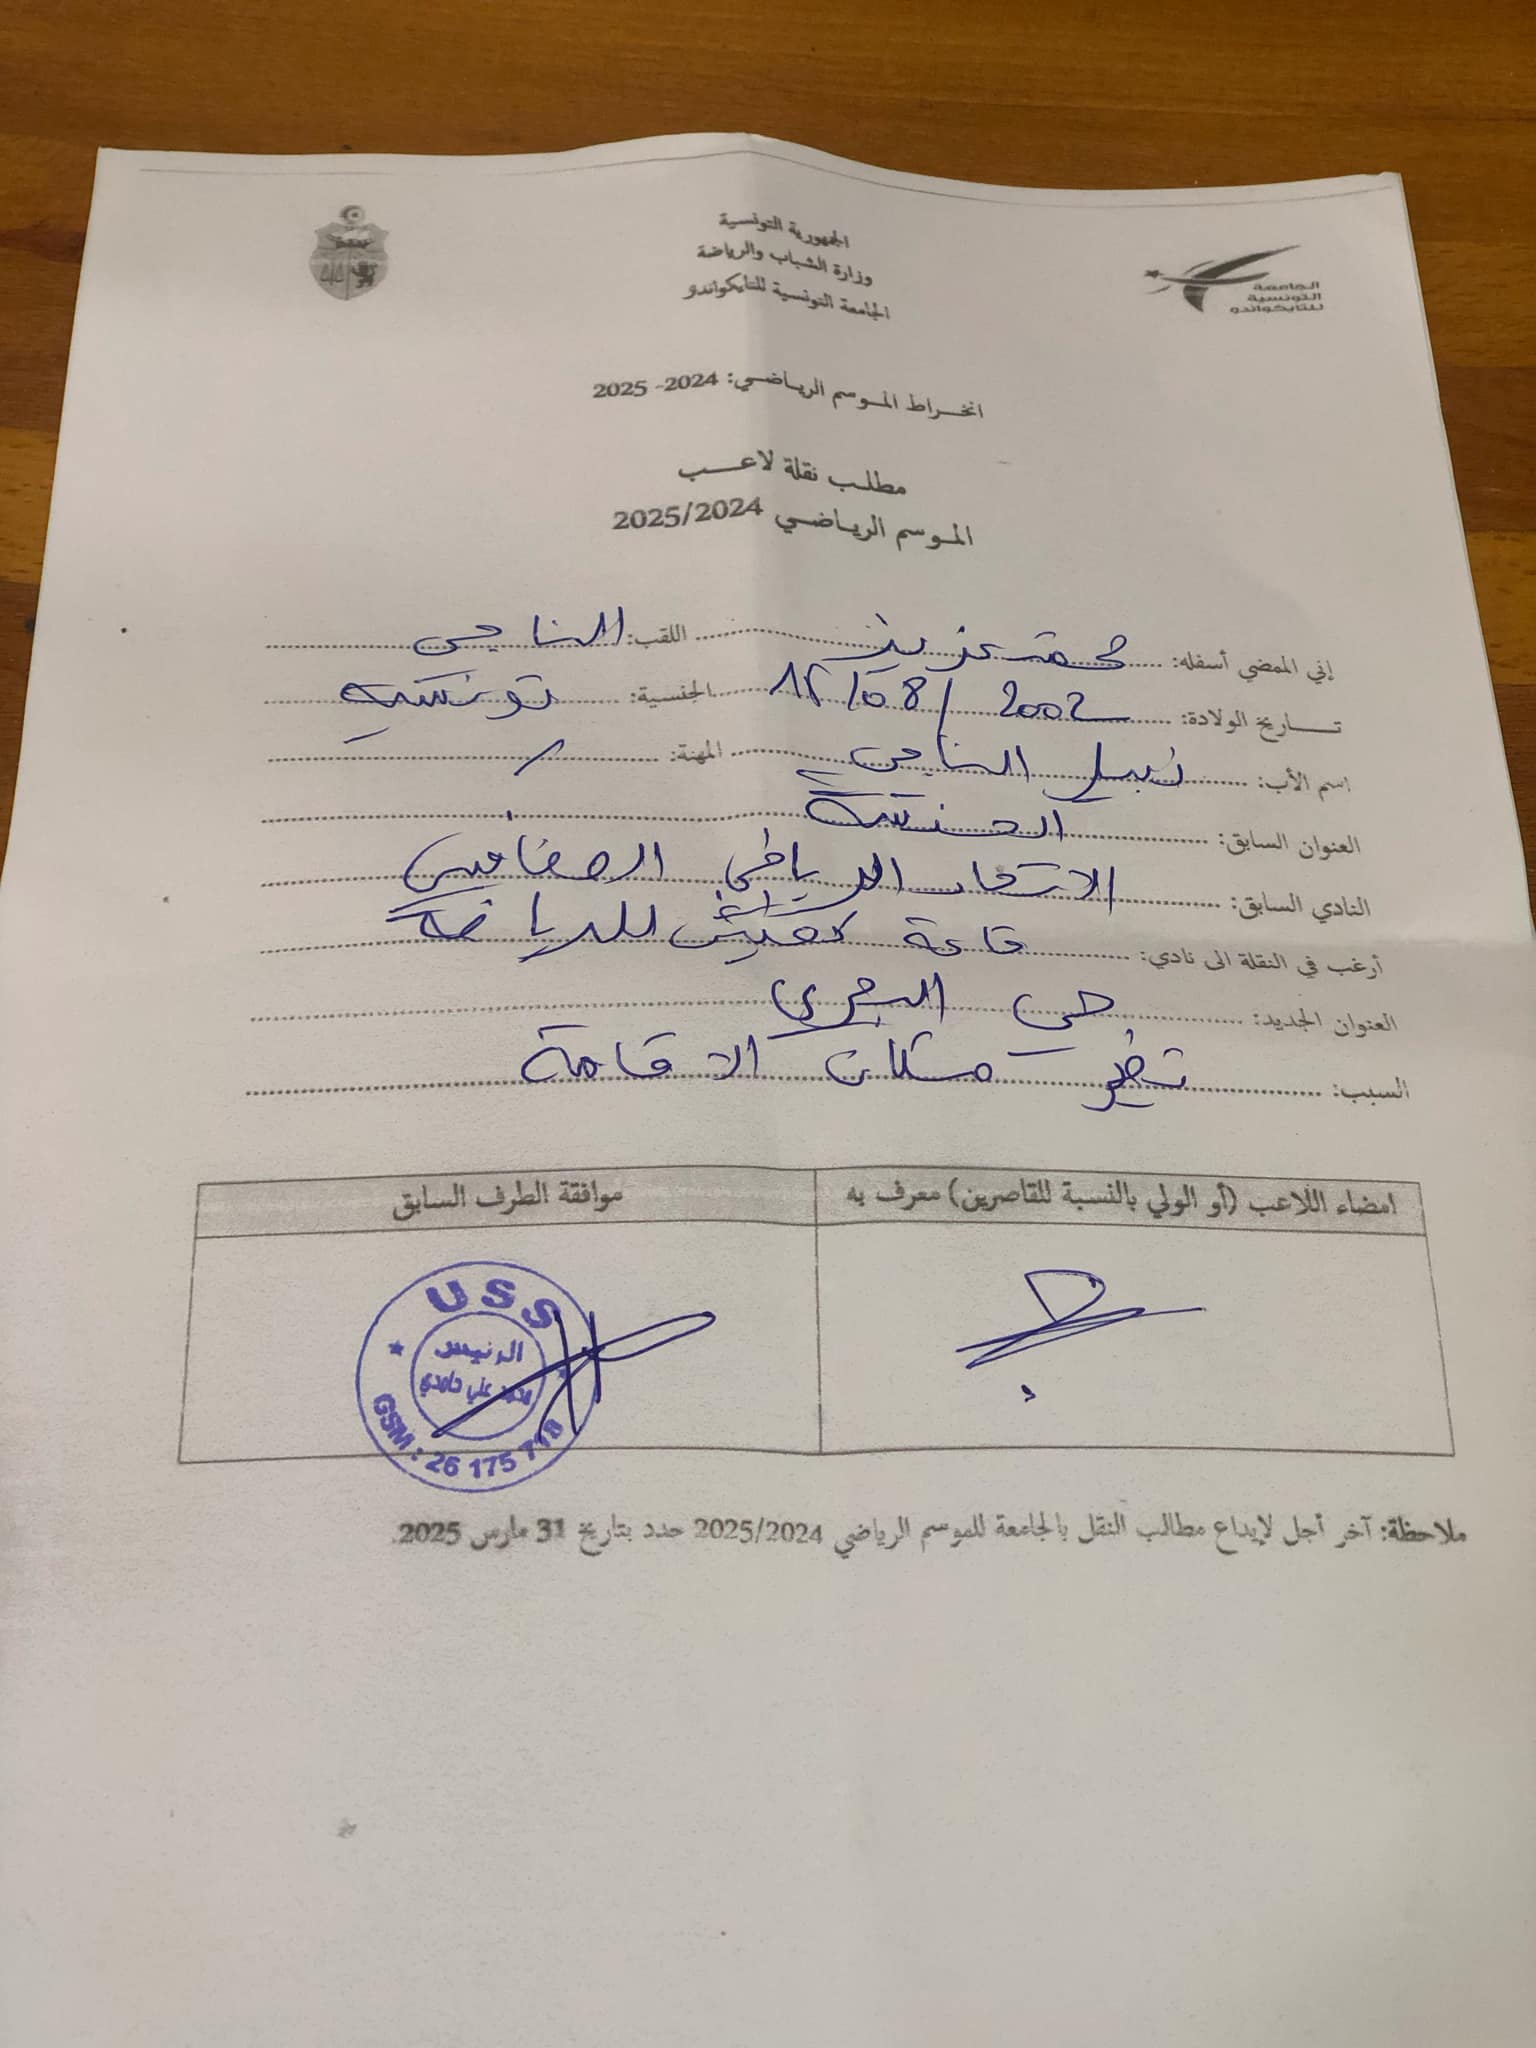 الجمهورية التونسية
وزارة الشباب والرياضة
الجامعة التونسية للتايكواندو
الجامعة
التونسية
للتايكواندو
انخراط الموسم الرياضي: 2024- 2025
مطلب نقلة لاعب
الموسم الرياضي 2025/2024
إني الممضي أسفله: محمد عزيز اللقب: الناجي
تاريخ الولادة: 2002/08/ الجنسية: تونسية
اسم الأب: نبيل الناجي المهنة: /
العنوان السابق:
النادي السابق: الاتحاد الرياضي الصفاقسي
أرغب في النقلة الى نادي: قاعة للرياضة
العنوان الجديد: حي البحري
السبب: تغير مكان الاقامة
امضاء اللاعب (أو الولي بالنسبة للقاصرين) معرف به
موافقة الطرف السابق
USS
الرئيس
محمد علي حامدي
GSM : 26 175 718
ملاحظة: آخر أجل لإيداع مطالب النقل بالجامعة للموسم الرياضي 2025/2024 حدد بتاريخ 31 مارس 2025